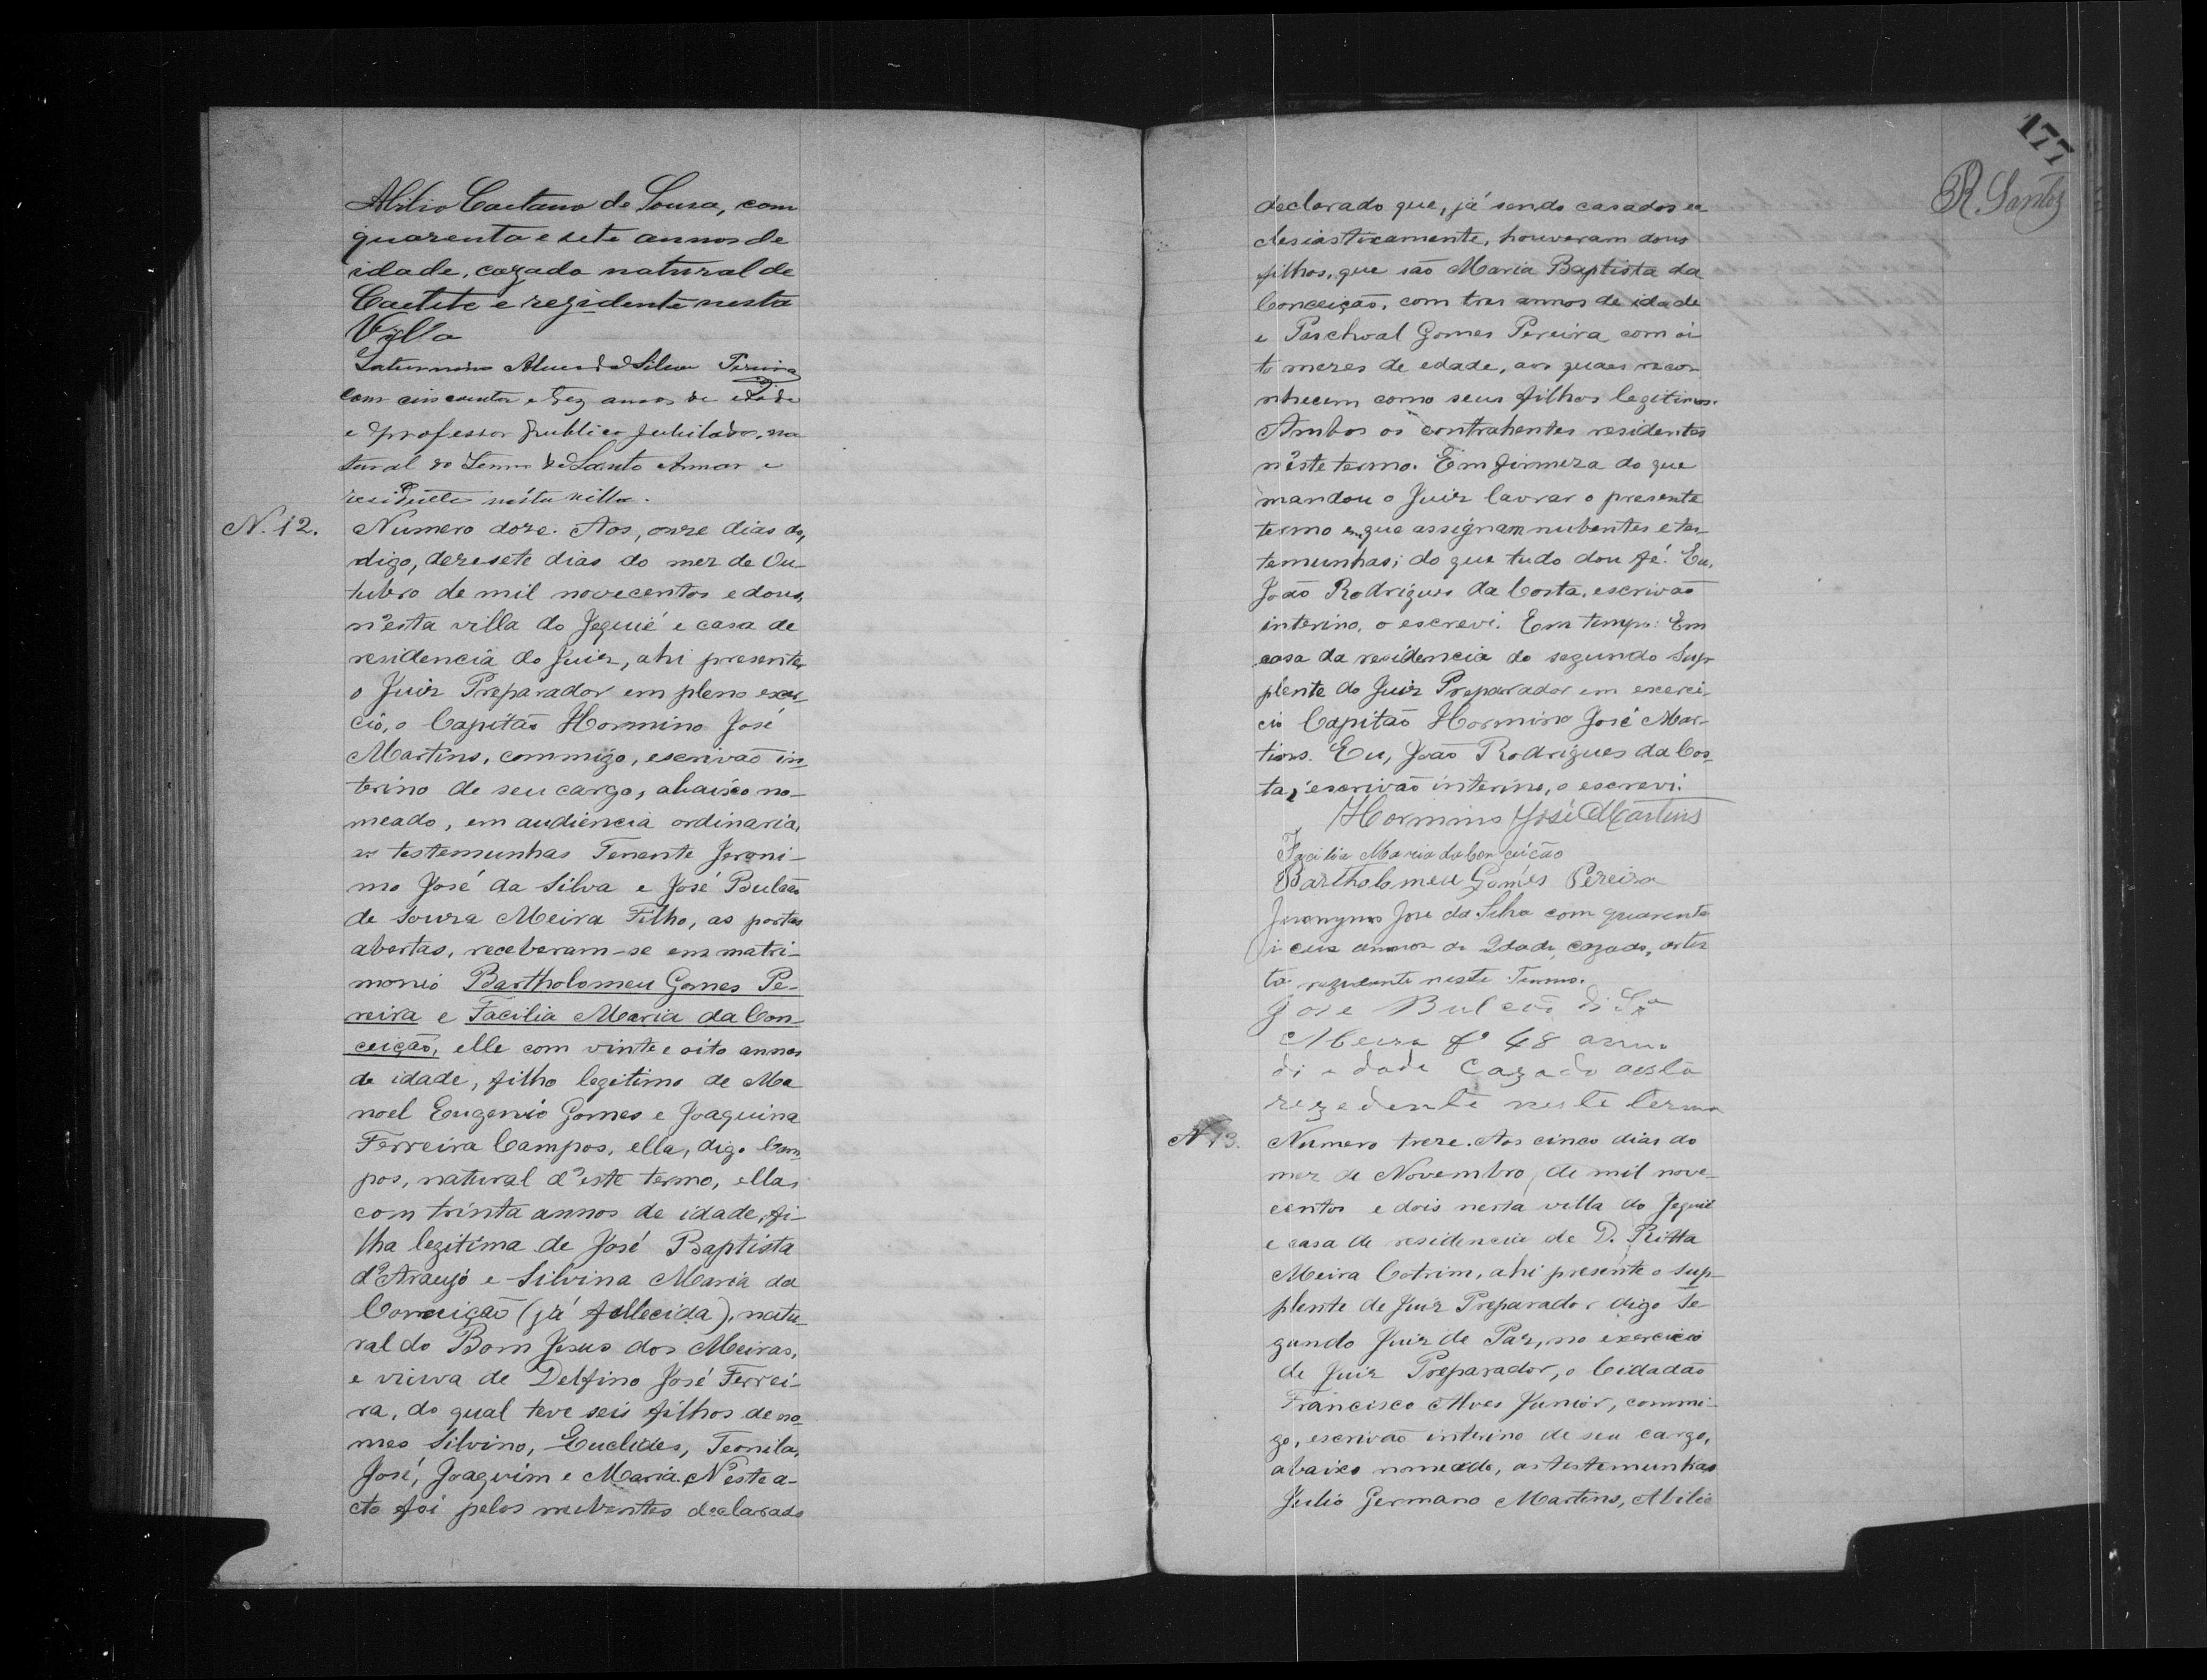 Abilio Caetano de Sousa, com
quarenta e sete annos de
idade, cazado natural de
Caetite e rezidente nesta
Villa
Saturnino Alves da Silva Pereira
com cincoenta e trez annos de idade
e professor publico jubilado, na
tural do Termo de Santo Amar e
residente nésta villa.
N. 12.
Numero doze. Aos, onze dias do,
digo, dezesete dias do mez de Ou-
tubro de mil novecentos e dous,
n'esta villa do Jequié e casa de
residencia do Juiz, ahi presente
o Juiz Preparador em pleno exer-
cio, o Capitão Hormino José
Martins, commigo, escrivão in-
terino de seu cargo, abaixo no-
meado, em audiencia ordinaria,
as testemunhas Tenente Jeroni-
mo José da Silva e José Bulcão
de Souza Meira Filho, as portas
abertas, receberam-se em matri-
monio Bartholomeu Gomes Pe-
reira e Facilia Maria da Con-
ceição, elle com vinte e oito annos
de idade, filho legitimo de Ma
noel Eugenio Gomes e Joaquina
Ferreira Campos, ella, digo Cam
pos, natural d'este termo, ella,
com trinta annos de idade, fi-
lha legitima de José Baptista
d'Araujo e Silvina Maria da
Conceição (já fallecida), natu
ral do Bom Jesus dos Meiras,
e viuva de Delfino José Ferrei-
ra, do qual teve seis filhos de no
mes Silvino, Euclides, Teonila,
José, Joaquim e Maria. N'este a-
cto foi pelos nubentes declarado
177
R Santos
declarado que, já sendo casados ec
clesiasticamente, houveram dous
filhos, que são Maria Baptista da
Conceição, com tres annos de idade
e Paschoal Gomes Pereira, com oi
to mezes de edade, aos quaes recon
nhecem como seus filhos legitimos.
Ambos os contrahentes residentes
n'este termo. Em firmeza do que
mandou o Juiz lavrar o presente
termo em que assignam nubentes e tes-
temunhas; do que tudo dou fé. Eu,
João Rodrigues da Costa, escrivão
interino, o escrevi. Em tempo: Em
casa da residencia do segundo Sup-
plente do Juiz Preparador em exerci-
cio Capitão Hormino José Mar-
tins. Eu, João Rodrigues da Cos-
ta, escrivão interino, o escrevi.
Hormino José Martins
Facilia Maria da Conceição
Bartholomeu Gomes Pereira
Jeronymo José da Silva com quarenta
annos de Idade, cazado, artis
ta rezidente neste Termo.
Jose Bulcão di Sza
Meira Fo 48 annos
di idade Cazado
rezedente neste termo
N 13.
Numero treze. Aos cinco dias do
mez de Novembro, de mil nove-
centos e dois nesta villa do Jequié
e casa de residencia de D. Ritta
Meira Cotrim, ahi presente o sup-
plente de Juiz Preparador digo Se-
gundo Juiz de Paz, no exercicio
de Juiz Preparador, o Cidadão
Francisco Alves Junior, commi-
go, escrivão interino de seu cargo,
abaixo nomeado, as testemunhas
Julio Germano Martins, Abilio